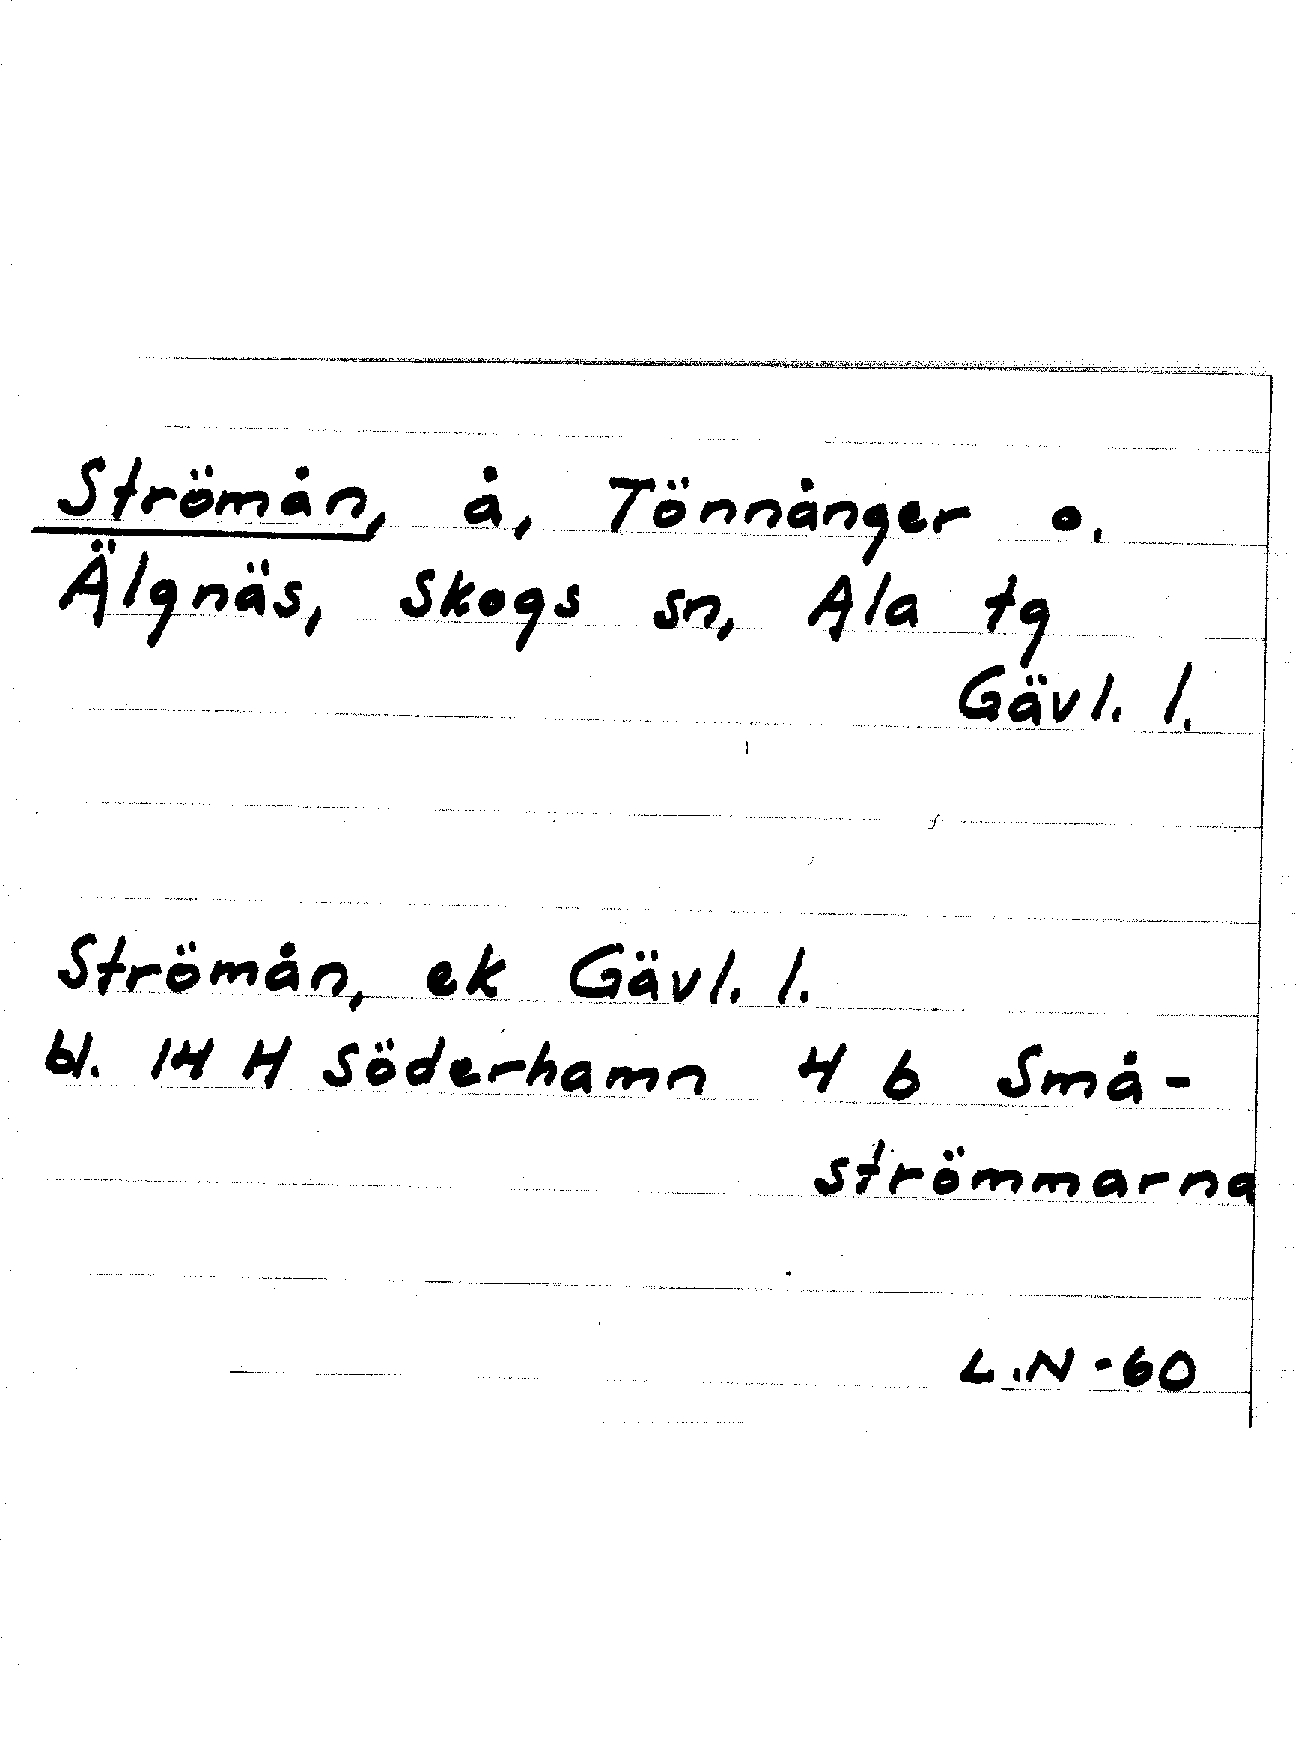 Strömån, å, Tönnånger o.
Älgnäs, Skogs sn, Ala tg
Gävl. l.
Strömån, ek Gävl. l.
bl. 14 H Söderhamn 4 b Små-
strömmarna
L.N -60